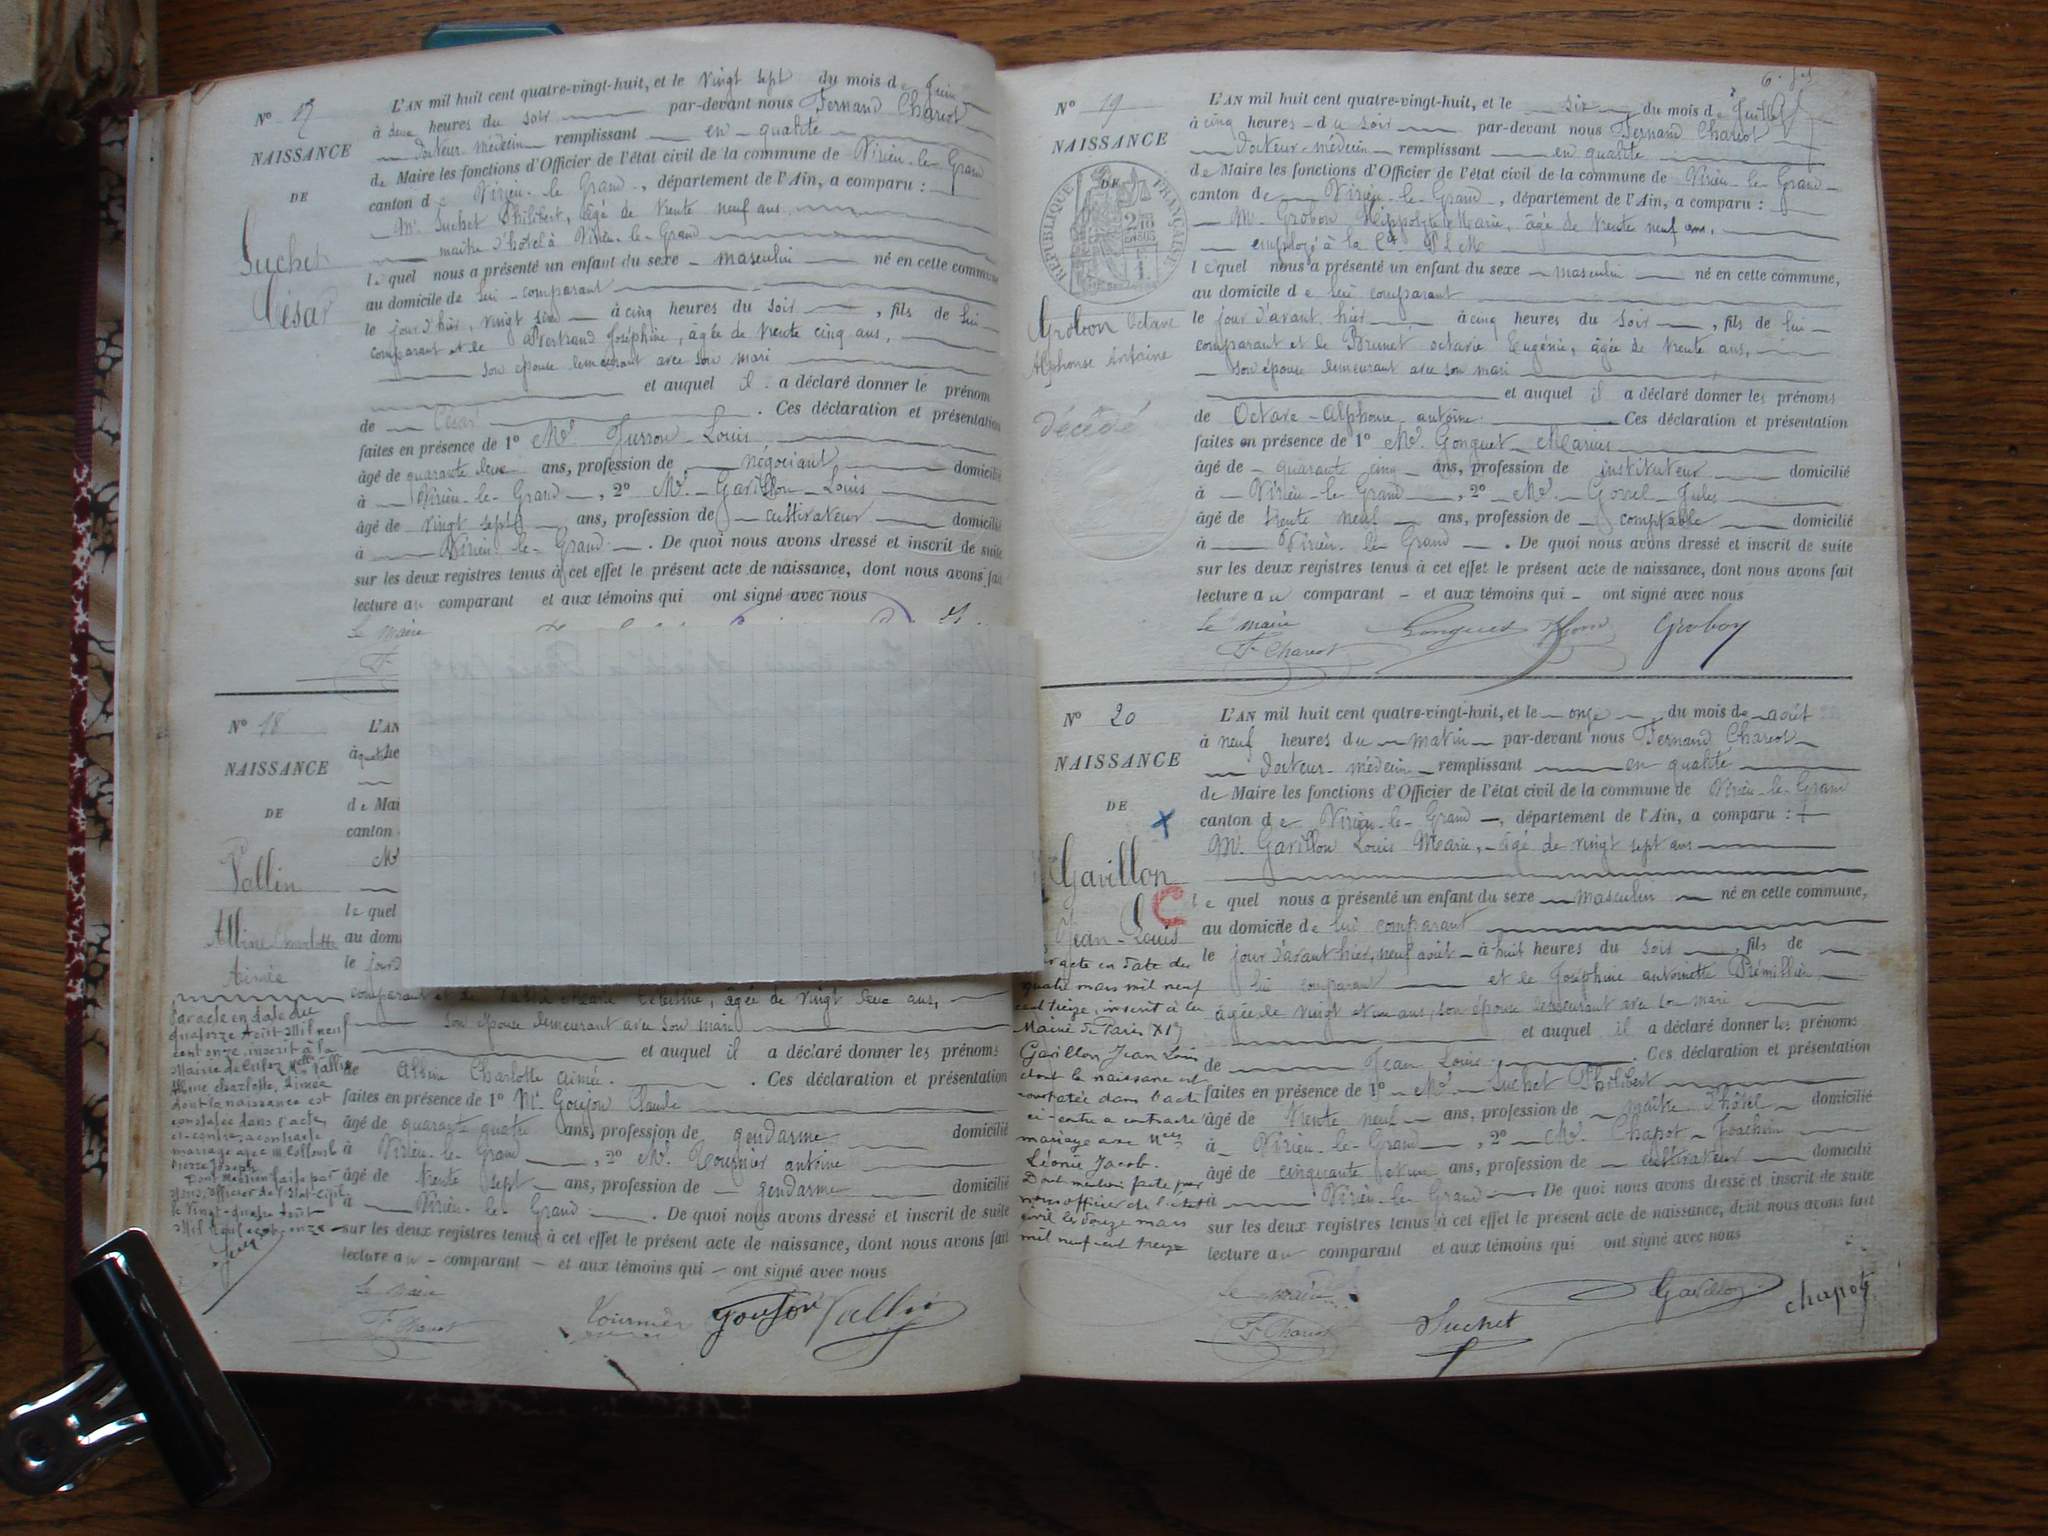 N° 17
NAISSANCE
DE
Suchet
César
L'AN mil huit cent quatre-vingt-huit, et le vingt sept du mois de Juin
à deux heures du soir par-devant nous Fernand Chariot
docteur-médecin remplissant en qualité
de Maire les fonctions d'Officier de l'état civil de la commune de Virieu-le-Grand
canton de Virieu-le-Grand, département de l'Ain, a comparu :
Mr Suchet Philibert, âgé de trente neuf ans
maître d'hôtel à Virieu-le-Grand
lequel nous a présenté un enfant du sexe masculin né en cette commune
au domicile de lui comparant
le jour d'hier, vingt six à cinq heures du soir, fils de lui
comparant et de Bertrand Joséphine, âgée de trente cinq ans,
son épouse demeurant avec son mari
et auquel il a déclaré donner le prénom
de César. Ces déclaration et présentation
faites en présence de 1° Mr Louis
âgé de quarante deux ans, profession de négociant domicilié
à Virieu-le-Grand, 2° Mr Gavillon Louis
âgé de vingt sept ans, profession de cultivateur domicilié
à Virieu-le-Grand. De quoi nous avons dressé et inscrit de suite
sur les deux registres tenus à cet effet le présent acte de naissance, dont nous avons fait
lecture au comparant et aux témoins qui ont signé avec nous
Le maire
N° 18
NAISSANCE
DE
Vallin
Albine Charlotte
Aimée
Par acte en date du
quatorze Août Mil neuf
cent onze, inscrit à la
Mairie de Culoz Melle Vallin
Albine Charlotte Aimée
dont la naissance est
constatée dans l'acte
ci-contre, a contracté
mariage avec M Collomb
Pierre Joseph
Dont Mention faite par
Nous, Officier de l'Etat-Civil
le Vingt-quatre Août
Mil neuf cent onze
L'AN
à quatre he
de Mai
canton
Mr
lequel
au domi
le jour d
comparant et de Vallin Marie Célestine, âgée de vingt deux ans,
son épouse demeurant avec son mari
et auquel il a déclaré donner les prénoms
de Albine Charlotte Aimée. Ces déclaration et présentation
faites en présence de 1° Mr Goujon Claude
âgé de quarante quatre ans, profession de gendarme domicilié
à Virieu-le-Grand, 2° Mr Tournier antoine
âgé de trente sept ans, profession de gendarme domicilié
à Virieu-le-Grand. De quoi nous avons dressé et inscrit de suite
sur les deux registres tenus à cet effet le présent acte de naissance, dont nous avons fait
lecture au comparant et aux témoins qui ont signé avec nous
Le maire
F. Chariot Tournier Goujon Vallin
N° 19
NAISSANCE
DE
RÉPUBLIQUE FRANÇAISE
Grobon Octave
Alphonse Antoine
décédé
L'AN mil huit cent quatre-vingt-huit, et le six du mois de Juillet
à cinq heures du soir par-devant nous Fernand Chariot
docteur-médecin remplissant en qualité
de Maire les fonctions d'Officier de l'état civil de la commune de Virieu-le-Grand
canton de Virieu-le-Grand, département de l'Ain, a comparu :
M. Grobon Hippolyte Marie, âgé de trente neuf ans,
employé à la Cie P L M
lequel nous a présenté un enfant du sexe masculin né en cette commune,
au domicile de lui comparant
le jour d'avant hier à cinq heures du soir, fils de lui
comparant et de Brunet octavie Eugénie, âgée de trente ans,
son épouse demeurant avec son mari
et auquel il a déclaré donner les prénoms
de Octave-Alphonse antoine. Ces déclaration et présentation
faites en présence de 1° Mr Gonguet Marius
âgé de quarante cinq ans, profession de instituteur domicilié
à Virieu-le-Grand, 2° Mr Jules
âgé de trente neuf ans, profession de comptable domicilié
à Virieu-le-Grand. De quoi nous avons dressé et inscrit de suite
sur les deux registres tenus à cet effet le présent acte de naissance, dont nous avons fait
lecture au comparant et aux témoins qui ont signé avec nous
Le maire
F. Chariot Gonguet Grobon
N° 20
NAISSANCE
DE
Gavillon
C
Jean-Louis
Par acte en date du
quatre mars mil neuf
cent treize, inscrit à la
Mairie de Paris XIX
Gavillon Jean Louis
dont la naissance est
constatée dans l'acte
ci-contre a contracté
mariage avec Melle
Léonie Jacob.
Dont mention faite par
nous officier de l'état
civil le douze mars
mil neuf cent treize
L'AN mil huit cent quatre-vingt-huit, et le onze du mois de août
à neuf heures du matin par-devant nous Fernand Chariot
docteur-médecin remplissant en qualité
de Maire les fonctions d'Officier de l'état civil de la commune de Virieu-le-Grand
canton de Virieu-le-Grand, département de l'Ain, a comparu :
M. Gavillon Louis Marie, âgé de vingt sept ans
lequel nous a présenté un enfant du sexe masculin né en cette commune,
au domicile de lui comparant
le jour d'avant hier, neuf août à huit heures du soir, fils de
lui comparant et de Joséphine antoinette Prémillieu
âgée de vingt et un ans, son épouse demeurant avec son mari
et auquel il a déclaré donner les prénoms
de Jean Louis. Ces déclaration et présentation
faites en présence de 1° Mr Suchet Philibert
âgé de trente neuf ans, profession de maître d'hôtel domicilié
à Virieu-le-Grand, 2° Mr Chapot Joachim
âgé de cinquante et un ans, profession de cultivateur domicilié
à Virieu-le-Grand. De quoi nous avons dressé et inscrit de suite
sur les deux registres tenus à cet effet le présent acte de naissance, dont nous avons fait
lecture au comparant et aux témoins qui ont signé avec nous
Le maire
F. Chariot Suchet Gavillon chapot